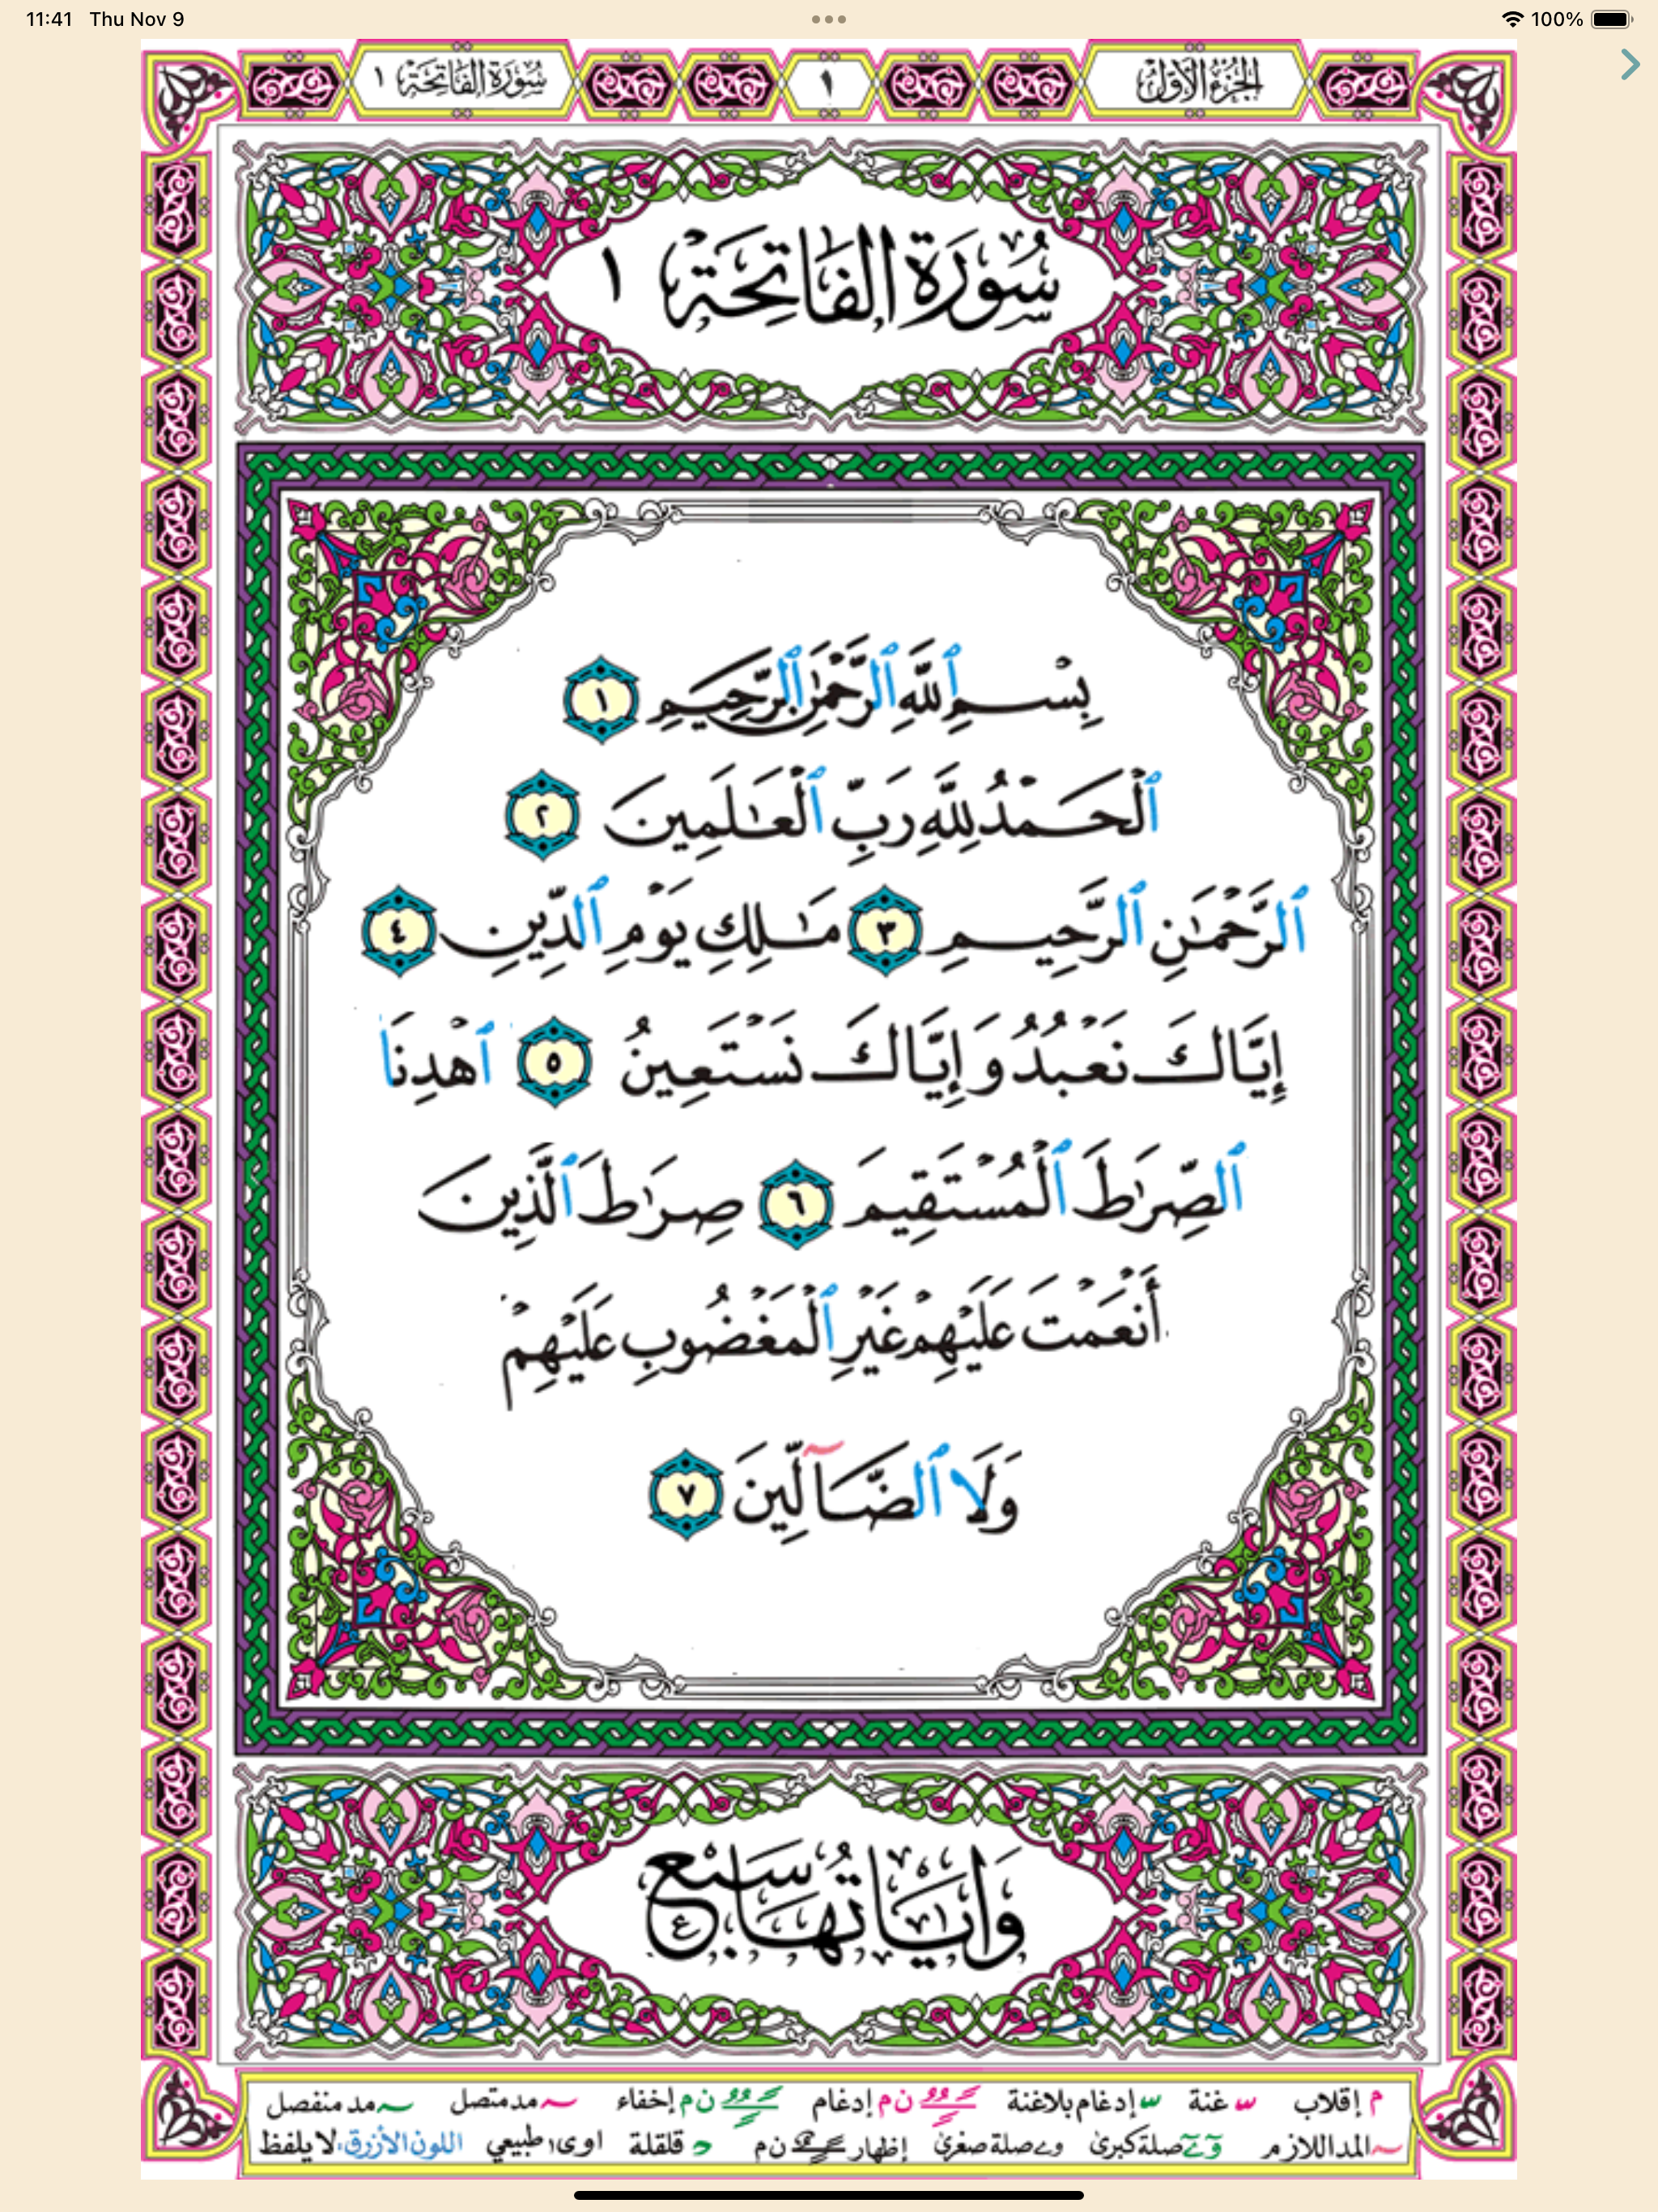 11:41 Thu Nov 9 100%
الجزء الأول ١ سورة الفاتحة ١
سُورَة الفَاتِحَة ١
بِسْمِ ٱللَّهِ ٱلرَّحْمَٰنِ ٱلرَّحِيمِ ١
ٱلْحَمْدُ لِلَّهِ رَبِّ ٱلْعَٰلَمِينَ ٢
ٱلرَّحْمَٰنِ ٱلرَّحِيمِ ٣ مَٰلِكِ يَوْمِ ٱلدِّينِ ٤
إِيَّاكَ نَعْبُدُ وَإِيَّاكَ نَسْتَعِينُ ٥ ٱهْدِنَا
ٱلصِّرَٰطَ ٱلْمُسْتَقِيمَ ٦ صِرَٰطَ ٱلَّذِينَ
أَنْعَمْتَ عَلَيْهِمْ غَيْرِ ٱلْمَغْضُوبِ عَلَيْهِمْ
وَلَا ٱلضَّآلِّينَ ٧
وَآيَاتُهَا سَبْع
م إقلاب س غنة س إدغام بلاغنة ن م إدغام ن م إخفاء مد متصل مد منفصل
المد اللازم صلة كبرى و ے صلة صغرى إظهار ن م قلقلة اوى طبيعي اللون الأزرق، لا يلفظ